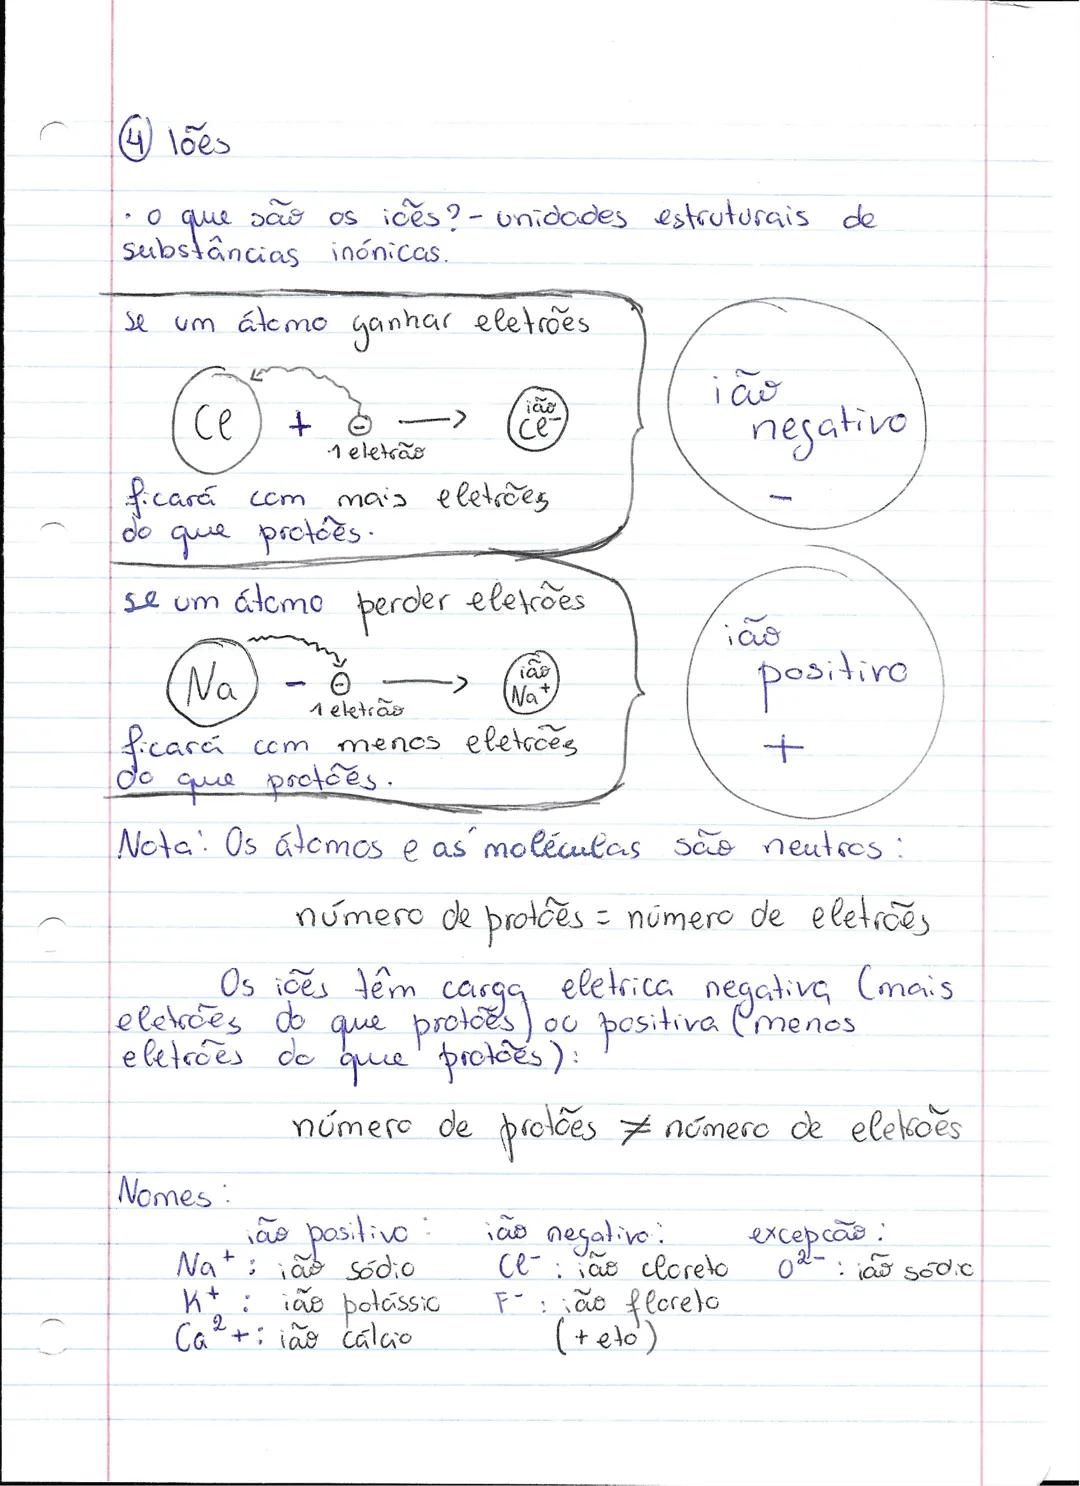 ④ Iões
· o que são os iões? - unidades estruturais de
substâncias inónicas.
se um átomo ganhar eletrões
Cl + ⊖ → ião Cl⁻
1 eletrão
ficará com mais eletrões
do que protões.
ião
negativo
-
se um átomo perder eletrões
Na - ⊖ → ião Na⁺
1 eletrão
ficará com menos eletrões
do que protões.
ião
positivo
+
Nota: Os átomos e as moléculas são neutros:
número de protões = número de eletrões
Os iões têm carga eletrica negativa (mais
eletrões do que protões) ou positiva (menos
eletrões do que protões):
número de protões ≠ número de eletrões
Nomes:
ião positivo: ião negativo: excepcão:
Na⁺: ião sódio Cl⁻: ião cloreto O²⁻: ião sódio
K⁺: ião potássio F⁻: ião floreto
Ca²⁺: ião cálcio (+ eto)